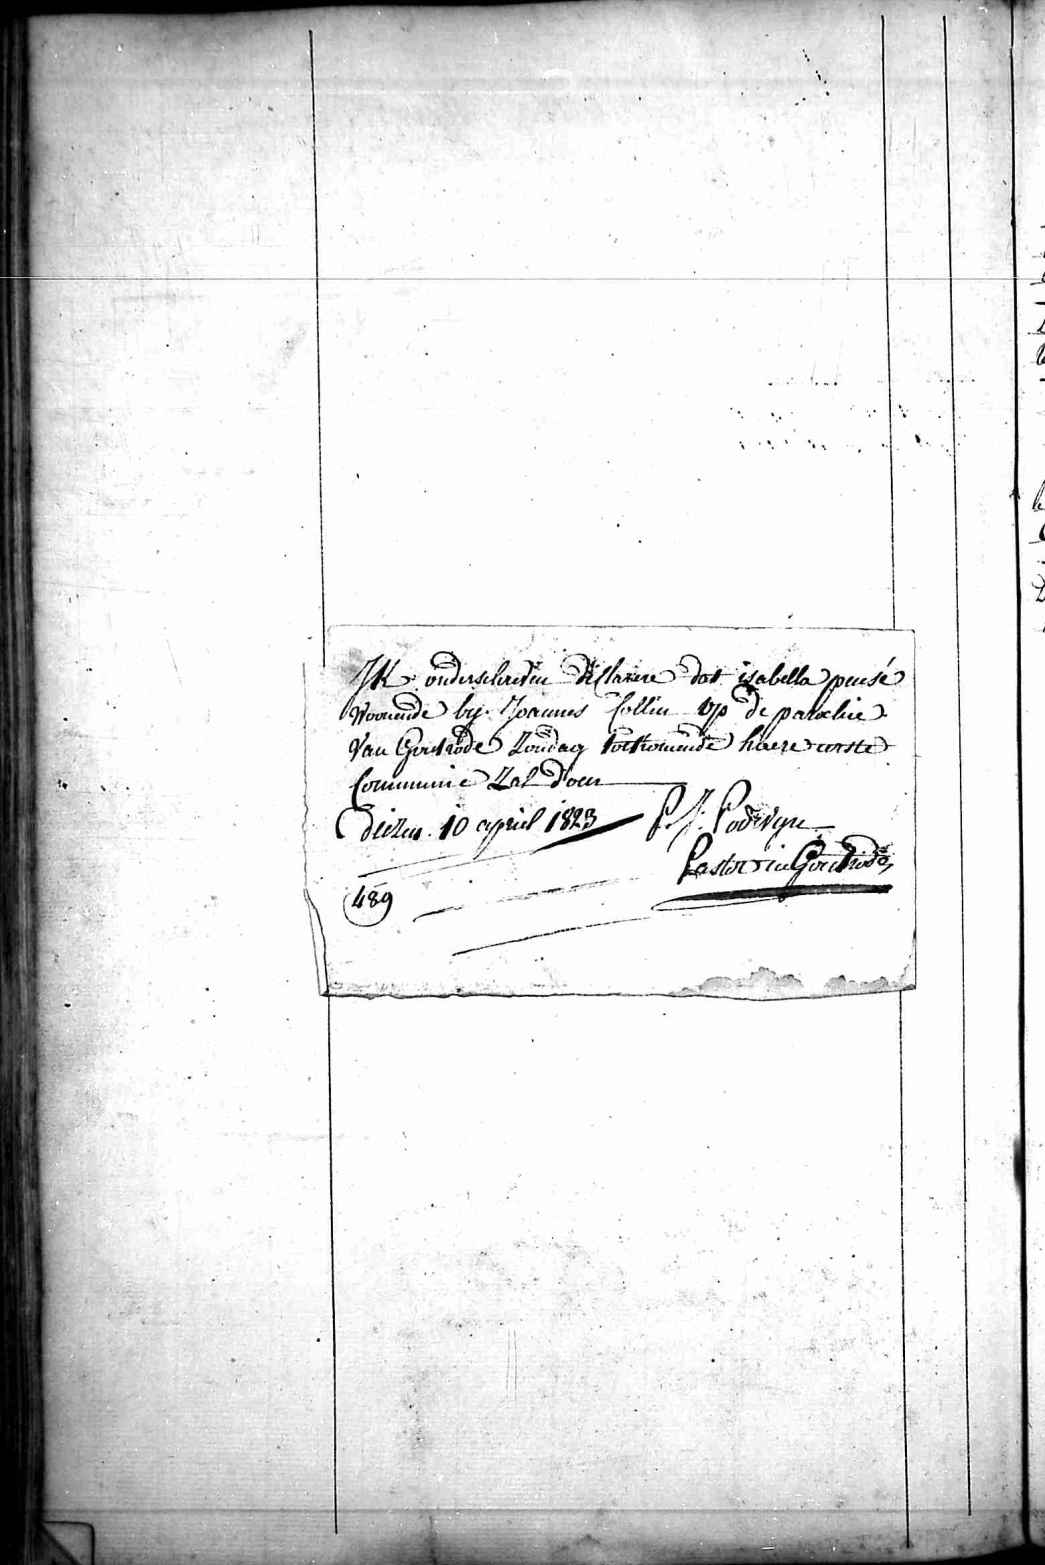 Ik onderschreven declarere dat isabella pensé
woonende by Joannes Collin op de parochie
van Gontrode Zondag toekomende haere eerste
Communie Zal doen
diezen 10 april 1823 P. J. Podevyn
Pastor in Gontrode
489